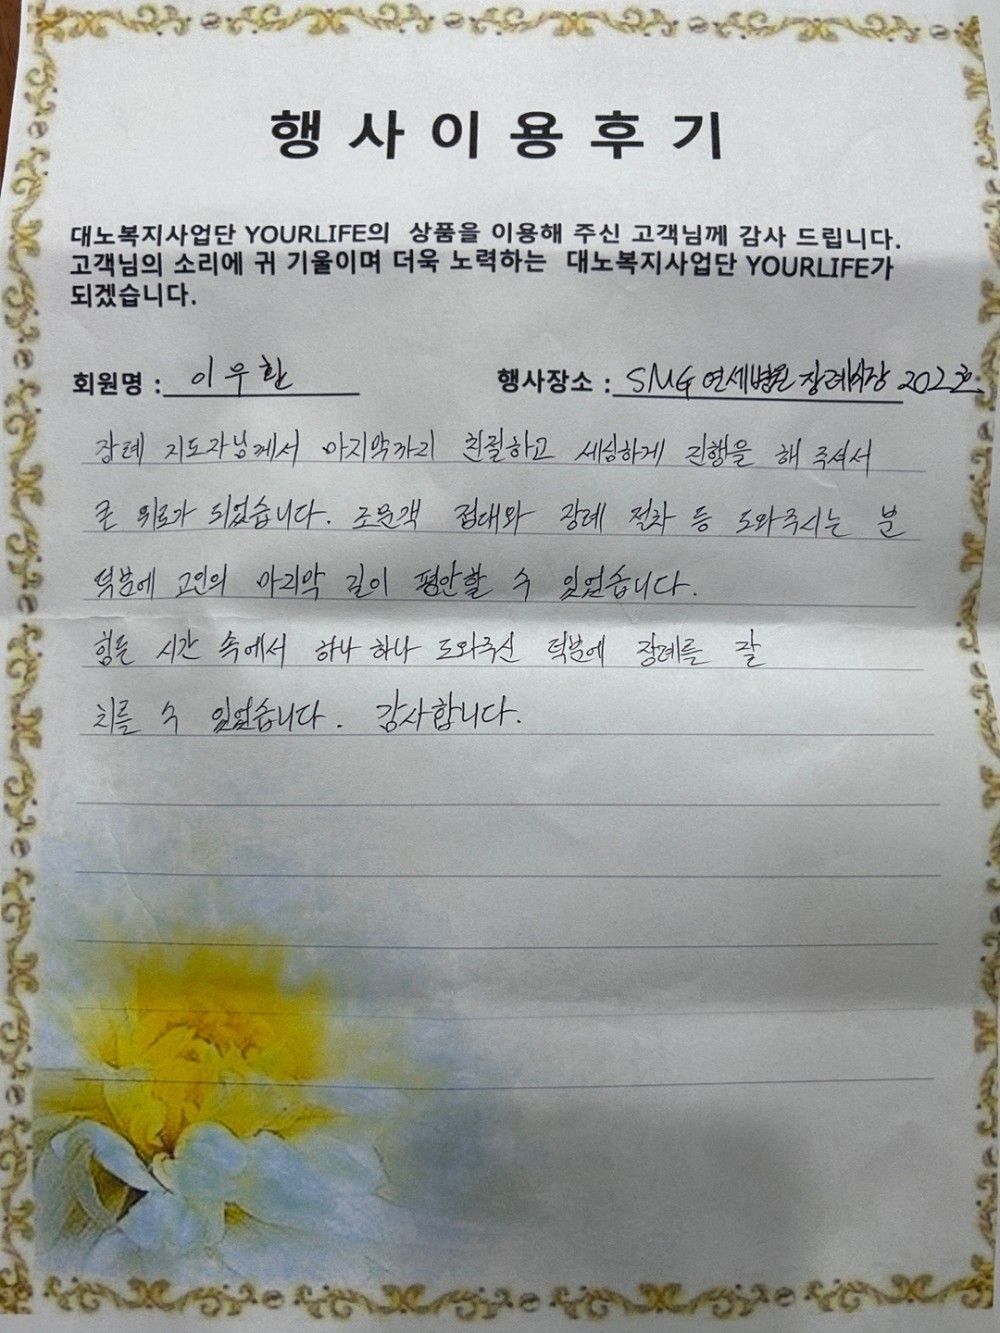 행사이용후기
대노복지사업단 YOURLIFE의 상품을 이용해 주신 고객님께 감사 드립니다.
고객님의 소리에 귀 기울이며 더욱 노력하는 대노복지사업단 YOURLIFE가
되겠습니다.
회원명 : 이우환 행사장소 : SMG 연세병원 장례식장
장례 지도자님께서 마지막까지 친절하고 세심하게 진행을 해 주셔서
큰 위로가 되었습니다. 조문객 접대와 장례 절차 등 도와주시는 분
덕분에 고인의 마지막 길이 평안할 수 있었습니다.
힘든 시간 속에서 하나 하나 도와주신 덕분에 장례를 잘
치를 수 있었습니다. 감사합니다.